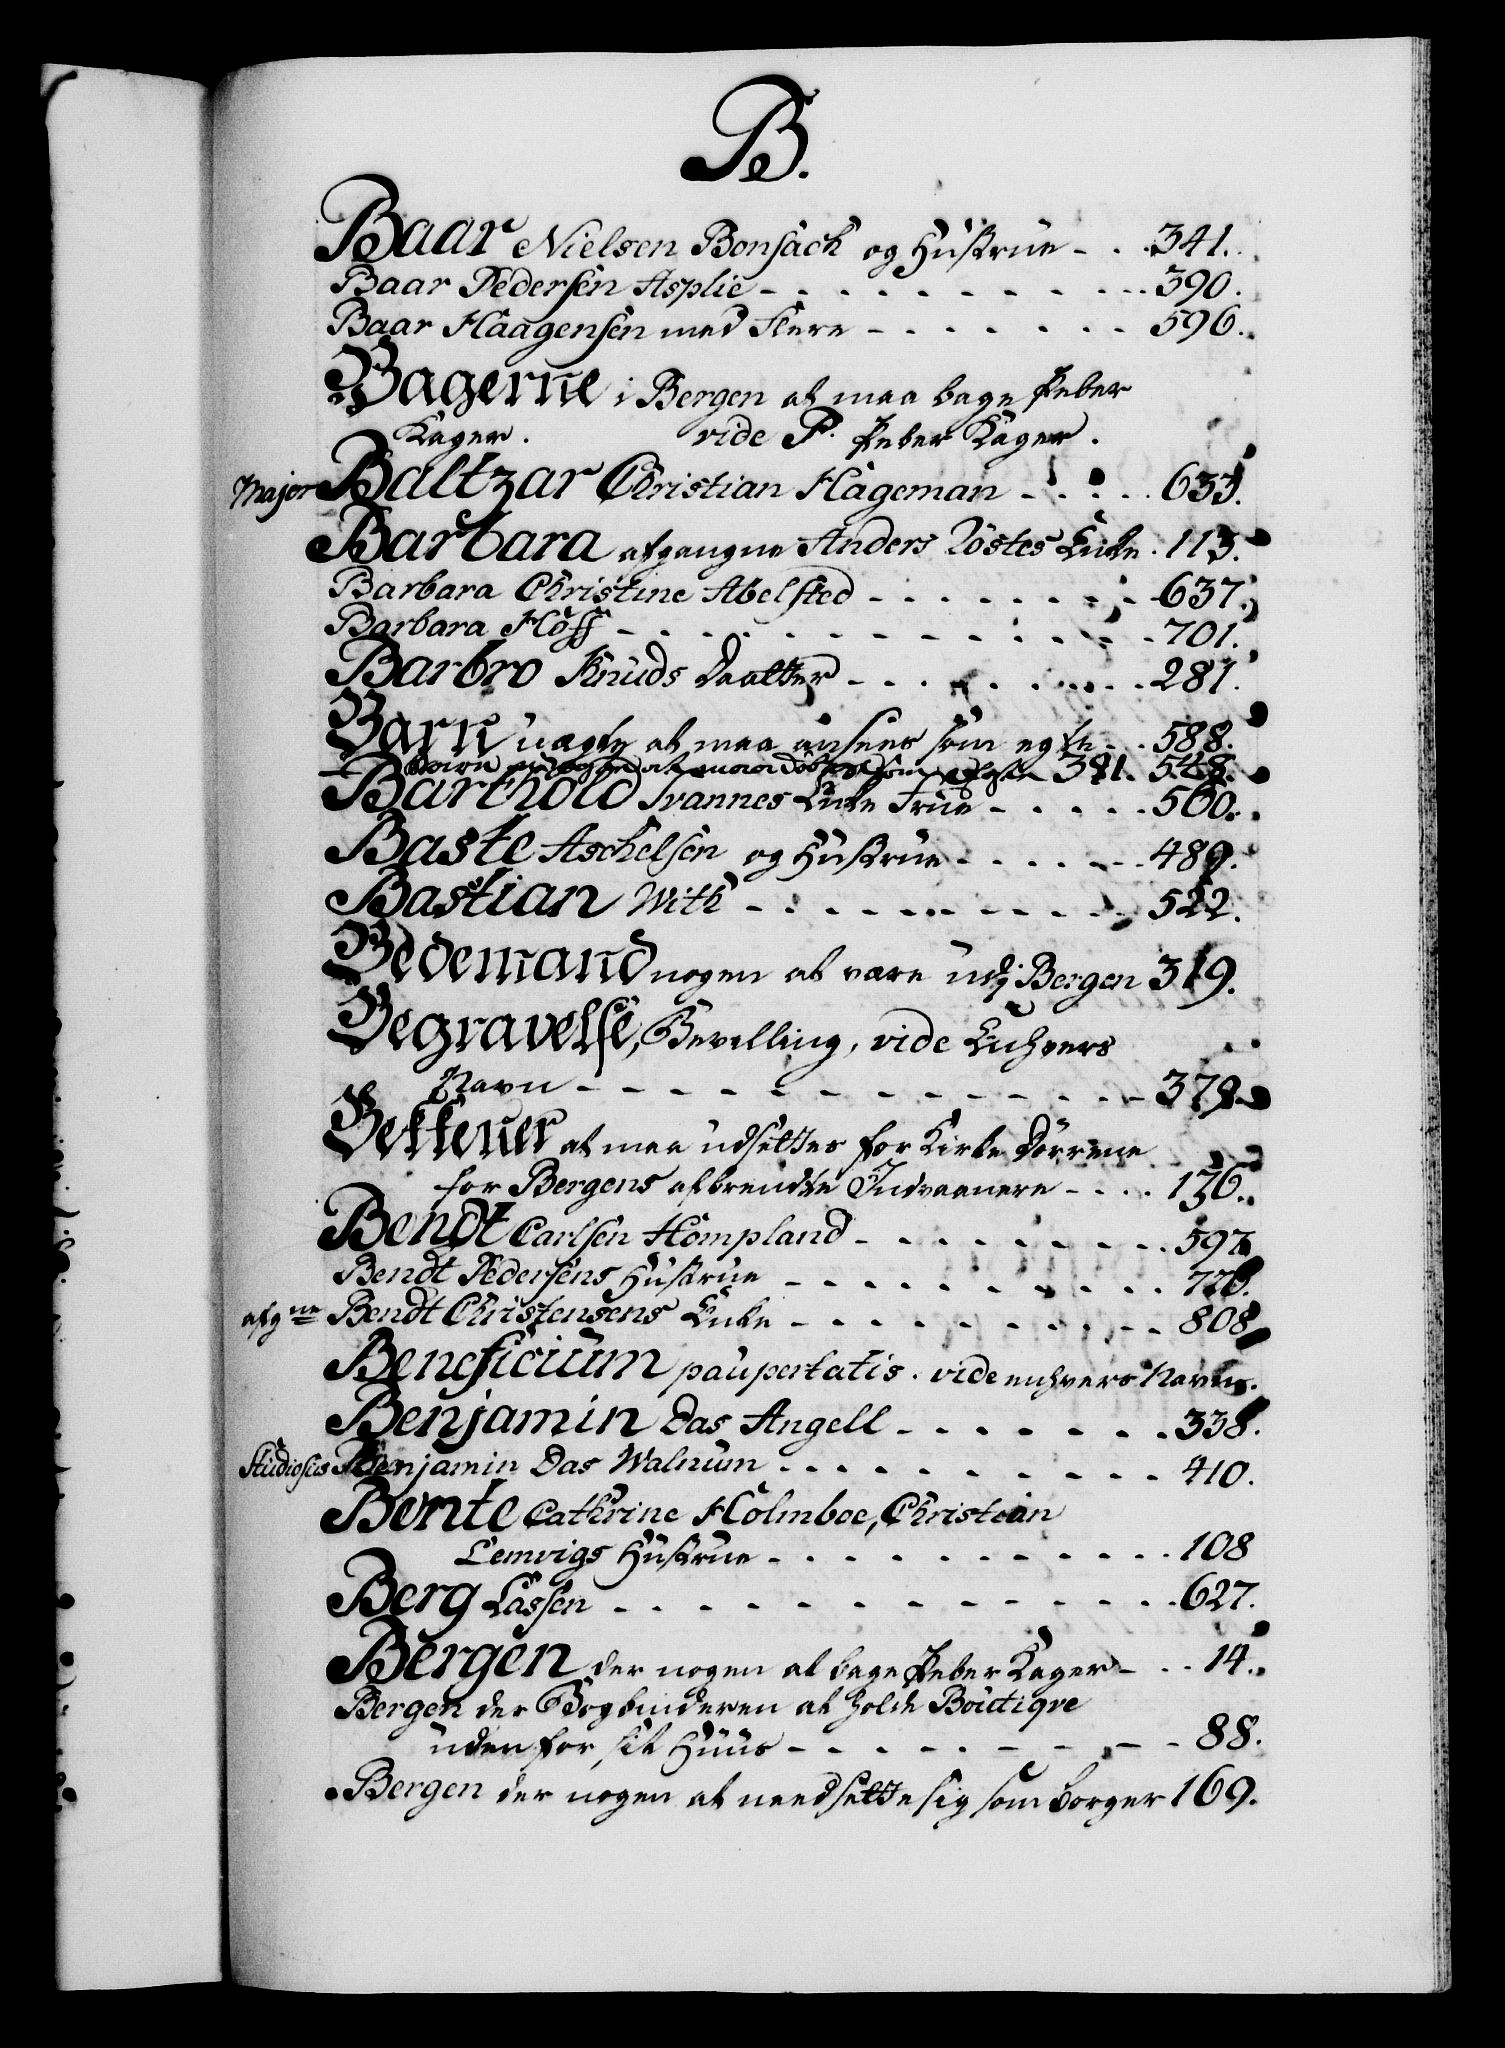 B.
Baar Nielsen Bonsach og Hustrue - . . 341.
Baar Pedersen Asplie - . . . . . . . . . 390.
Baar Haagensen med Flere - . . . . . . 596.
Bagerne i Bergen at maa bage Peber
Kager. vide P. Peber Kager.
Major Baltzar Christian Hageman - . . . . 633.
Barbara afgangne Anders Röstes Enke . 113.
Barbara Christine Abelsted - . . . . . . 637.
Barbara Hoff - . . . . . . . . . . . 701.
Barbro Knuds Daatter - . . . . . . . 281.
Barn uægte at maa ansees som egte . . 588.
Barn at maa döbes som 391. 548.
Barthold Svannes Enke Frue - . . . . 560.
Baste Aschelsen og Hustrue . . . . . . 489.
Bastian With - . . . . . . . . . 522.
Bedemand nogen at være udj Bergen 319.
Begravelse, Bevilling, vide Enhvers
Navn - . . . . . . . . . . . . 379.
Bekkener at maa udsettes for Kirke Dörrene
for Bergens afbrendte Indvaanere - . . . 136.
Bendt Carlsen Hompland - . . . . . . . 597.
Bendt Pedersens Hustrue - . . . . . . . . 776.
afgne Bendt Christensens Enke - . . . . . . . . 808.
Beneficium paupertatis . vide enhvers Navn.
Benjamin Das Angell - . . . . . . . 338.
Studiosus Benjamin Das Walnum . . . . . . . . . . 410.
Bente Cathrine Holmboe, Christian
Lemvigs Hustrue - . . . . . . . . . . 108
Berg Lassen . . . . . . . . . . . . . . 627.
Bergen der nogen at bage Peber Kager - . . 14.
Bergen der Bogbinderen at holde Boutiqve
uden for sit Huus - . . . . . . . . . 88.
Bergen der nogen at needsette sig som borger 169.